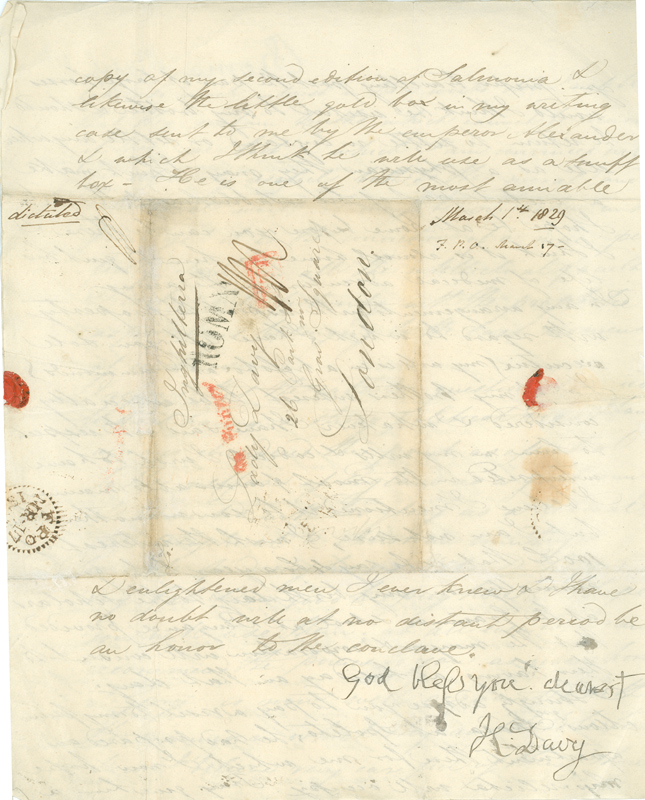 copy of my second edition of Salmonia &
likewise the little gold box in my writing
case sent to me by the emperor Alexander
& which I think he will use as a snuff
box - He is one of the most amiable
dictated
March 1st 1829
F. P. O. March 17-
Inghilterra
ROMA
Lady Davy
26 Park St
Gros. Square
London.
FPO
MR-17
& enlightened men I ever knew & I have
no doubt will at no distant period be
an honor to the conclave.
God bless you dearest
H. Davy